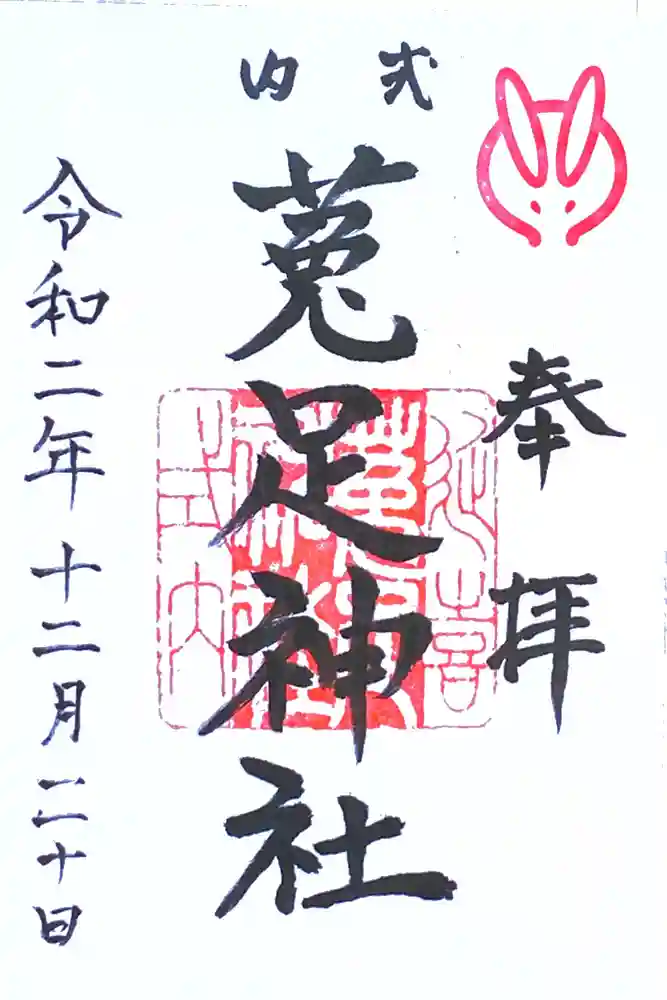 奉拝
式内
菟足神社
令和二年十二月二十日
延喜
式内